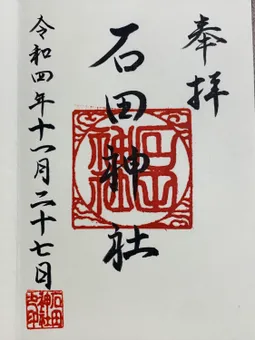 奉拝
石田神社
令和四年十一月二十七日
石田神社之印